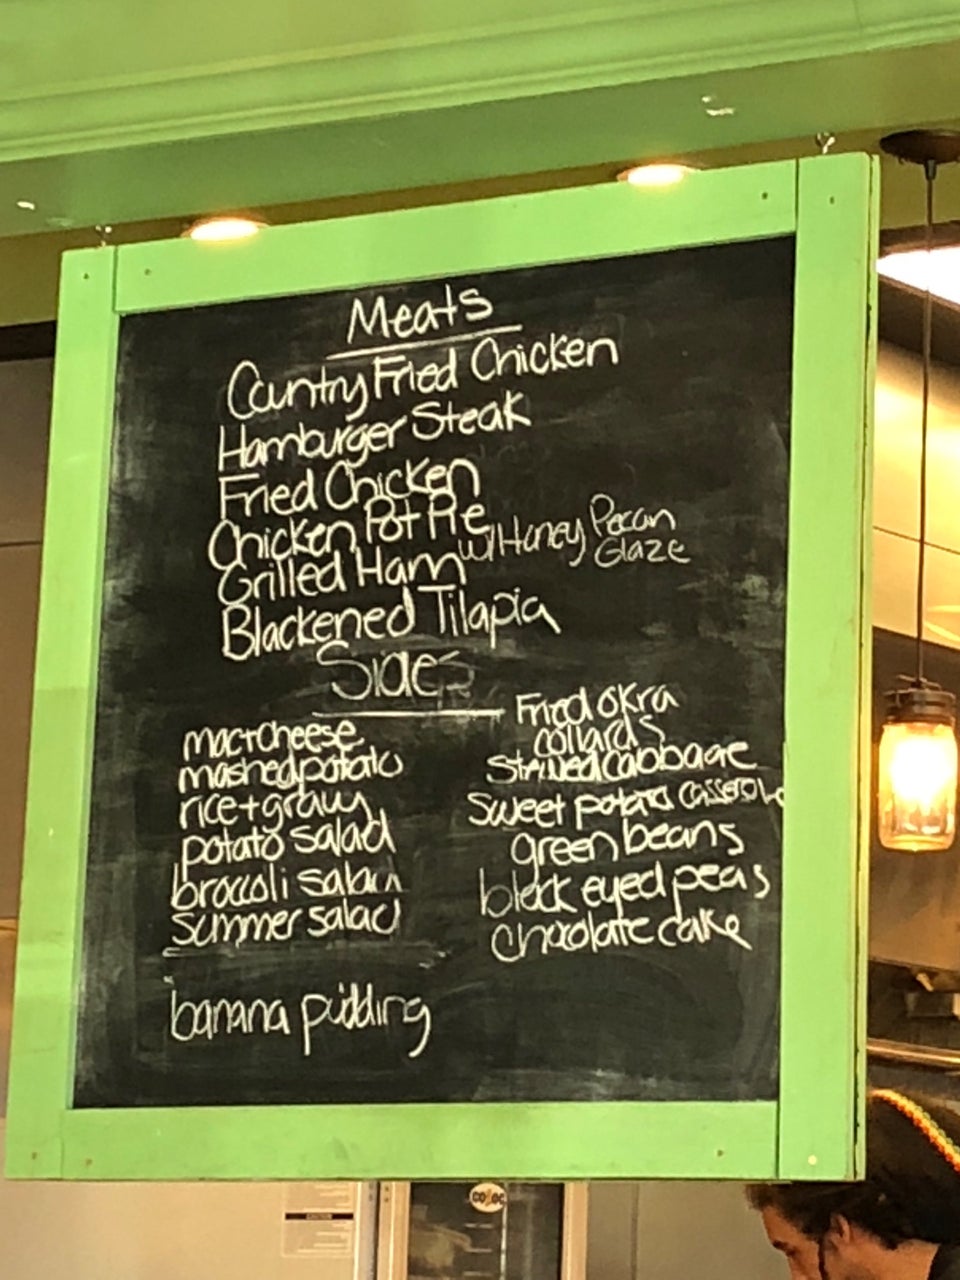 Meats
Country Fried Chicken
Hamburger Steak
Fried Chicken
Chicken Pot Pie
Grilled Ham w/ Honey Pecan
Glaze
Blackened Tilapia
Sides
mac+cheese
mashed potato
rice+gravy
potato salad
broccoli salad
summer salad
banana pudding
Fried okra
collards
steamed cabbage
sweet potato casserole
green beans
black eyed peas
chocolate cake